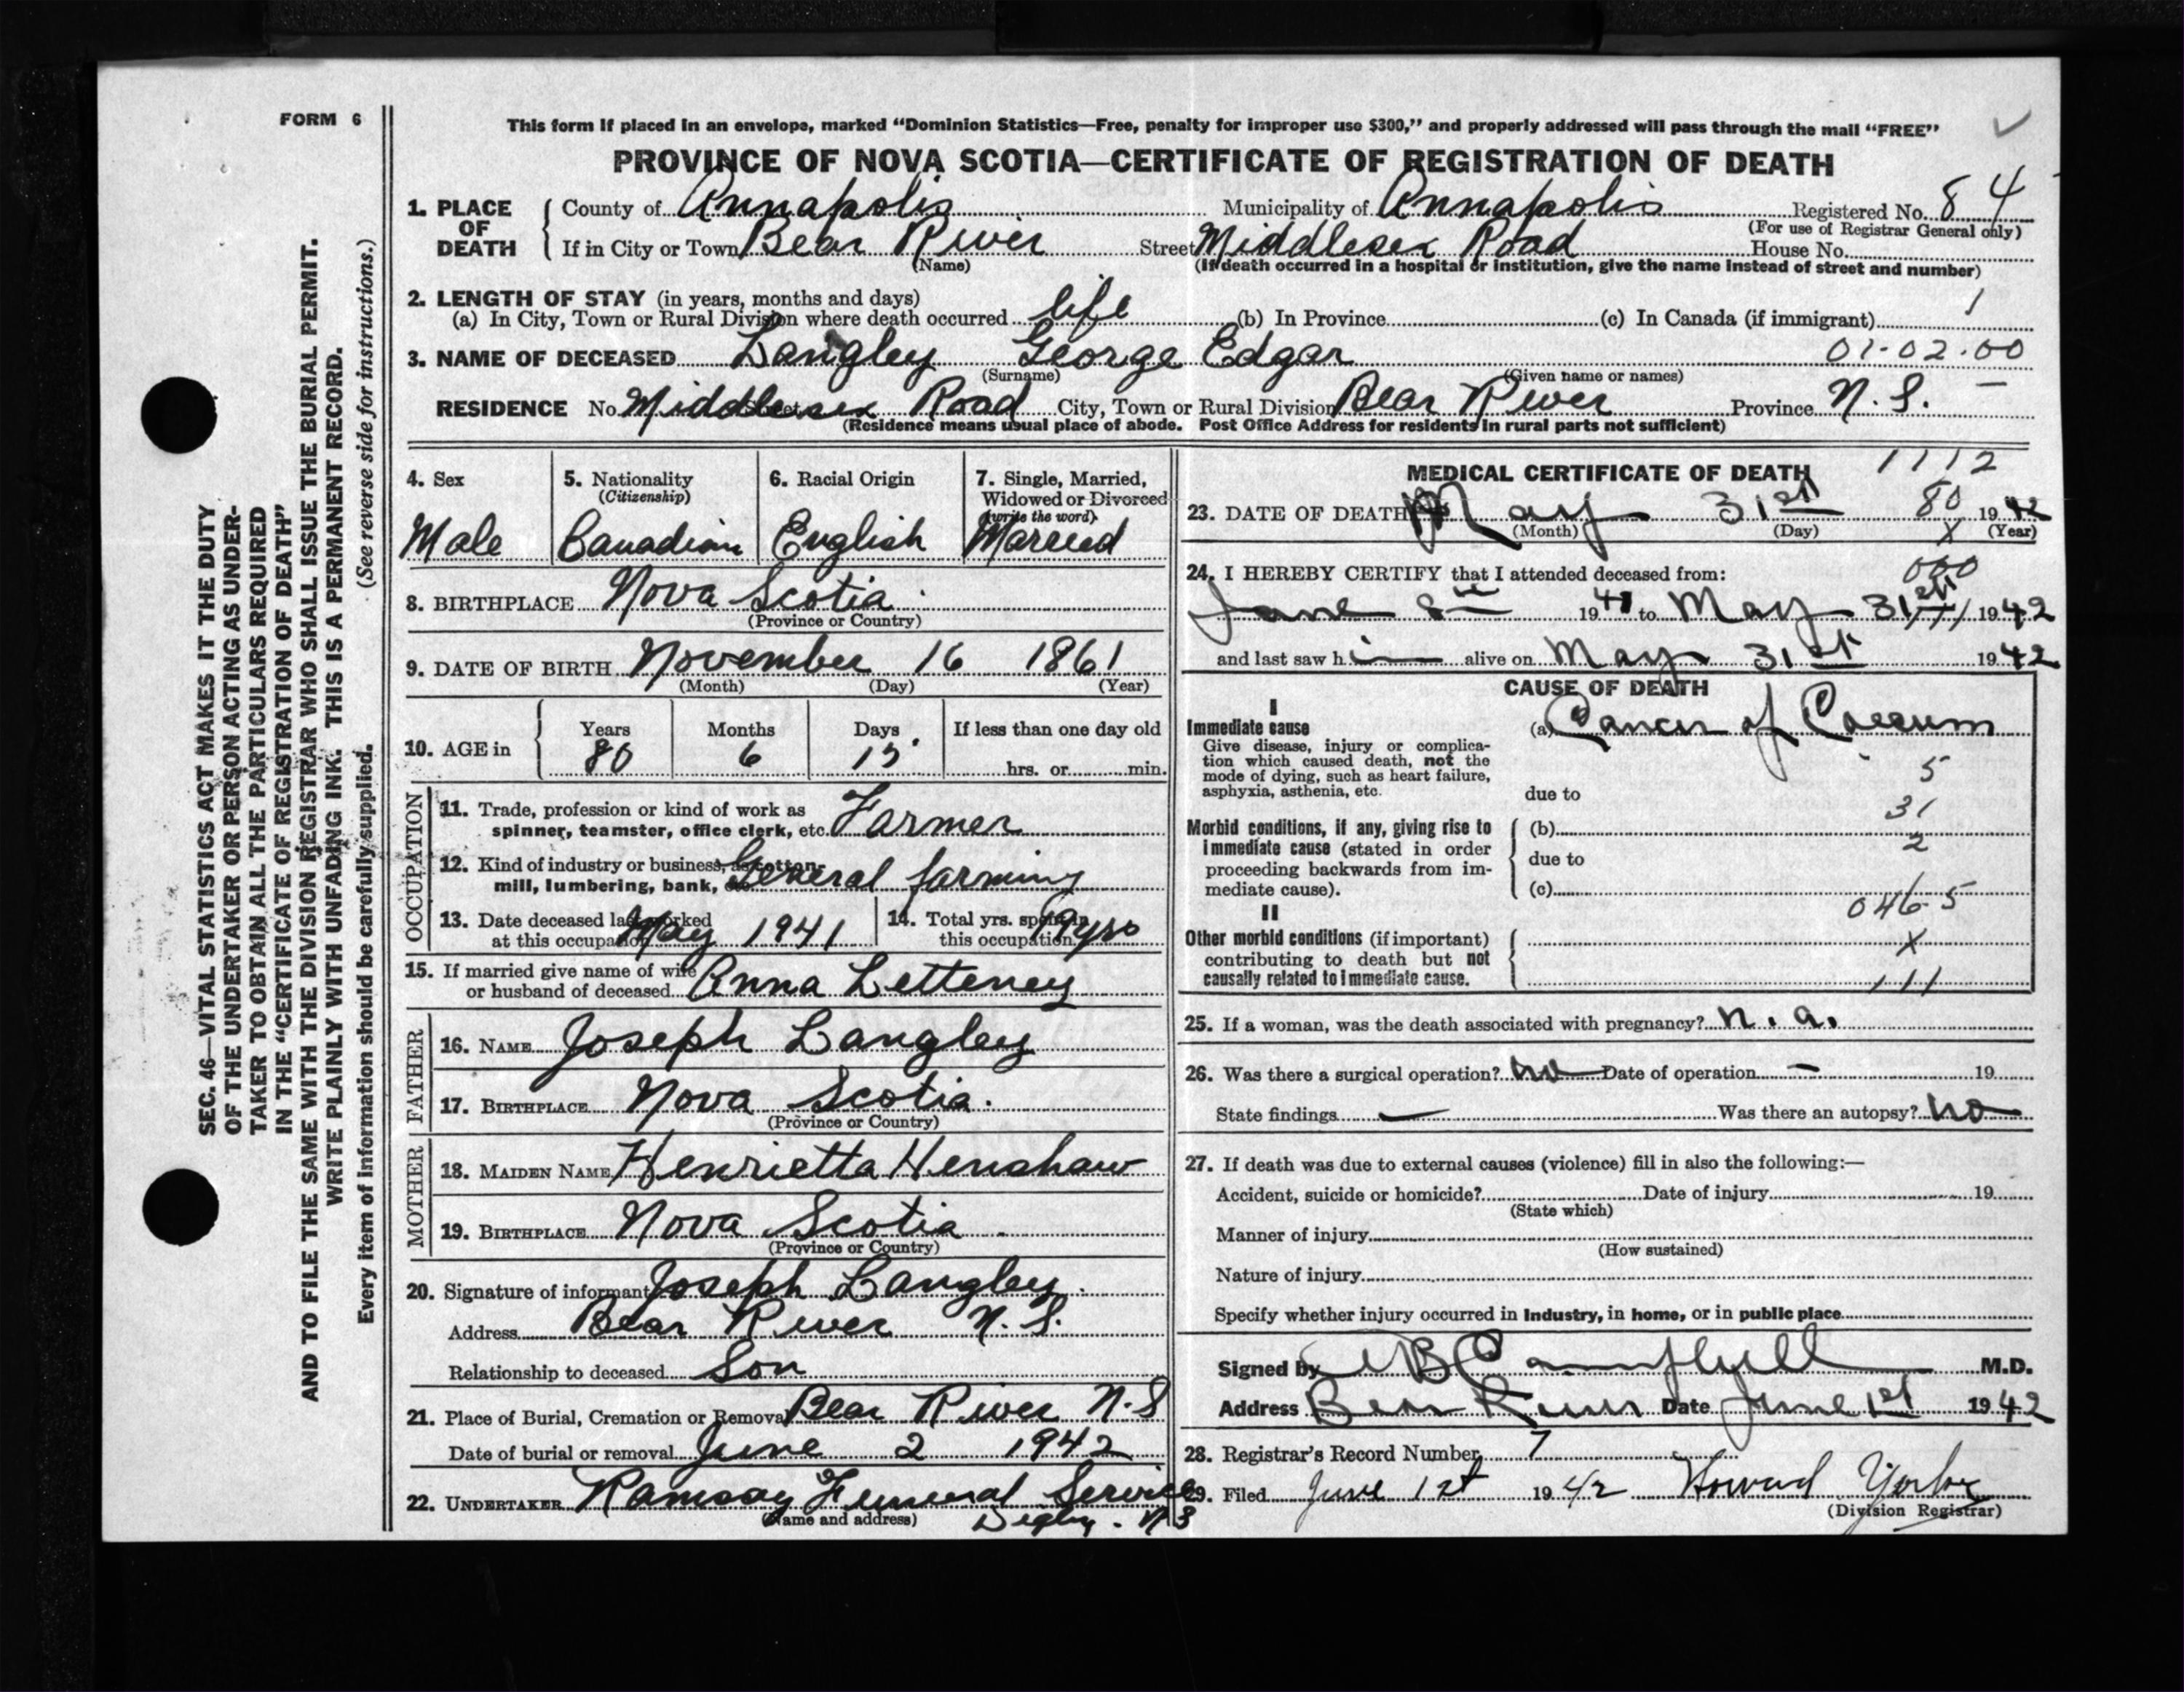 FORM 6
This form if placed in an envelope, marked "Dominion Statistics—Free, penalty for improper use $300," and properly addressed will pass through the mail "FREE"
PROVINCE OF NOVA SCOTIA—CERTIFICATE OF REGISTRATION OF DEATH
1. PLACE OF DEATH County of Annapolis Municipality of Annapolis Registered No. 84
(For use of Registrar General only)
If in City or Town Bear River Street Middlesex Road House No.
(Name) (If death occurred in a hospital or institution, give the name instead of street and number)
2. LENGTH OF STAY (in years, months and days)
(a) In City, Town or Rural Division where death occurred life (b) In Province (c) In Canada (if immigrant)
3. NAME OF DECEASED Langley George Edgar 01-02-00
(Surname) (Given name or names)
RESIDENCE No. Middlesex Road City, Town or Rural Division Bear River Province N.S.
(Residence means usual place of abode. Post Office Address for residents in rural parts not sufficient)
SEC. 46—VITAL STATISTICS ACT MAKES IT THE DUTY
OF THE UNDERTAKER OR PERSON ACTING AS UNDER-
TAKER TO OBTAIN ALL THE PARTICULARS REQUIRED
IN THE "CERTIFICATE OF REGISTRATION OF DEATH"
AND TO FILE THE SAME WITH THE DIVISION REGISTRAR WHO SHALL ISSUE THE BURIAL PERMIT.
WRITE PLAINLY WITH UNFADING INK. THIS IS A PERMANENT RECORD.
Every item of information should be carefully supplied. (See reverse side for instructions.)
4. Sex 5. Nationality 6. Racial Origin 7. Single, Married,
(Citizenship) Widowed or Divorced
(write the word)
Male Canadian English Married
8. BIRTHPLACE Nova Scotia
(Province or Country)
9. DATE OF BIRTH November 16 1861
(Month) (Day) (Year)
Years Months Days If less than one day old
10. AGE in 80 6 15 hrs. or min.
OCCUPATION
11. Trade, profession or kind of work as
spinner, teamster, office clerk, etc. Farmer
12. Kind of industry or business, as cotton-
mill, lumbering, bank, General farming
13. Date deceased last worked
at this occupation May 1941
14. Total yrs. spent in
this occupation yrs
15. If married give name of wife
or husband of deceased Anna Letteney
FATHER
16. NAME Joseph Langley
17. BIRTHPLACE Nova Scotia.
(Province or Country)
MOTHER
18. MAIDEN NAME Henrietta Henshaw
19. BIRTHPLACE Nova Scotia
(Province or Country)
20. Signature of informant Joseph Langley
Address Bear River N.S.
Relationship to deceased Son
21. Place of Burial, Cremation or Removal Bear River N.S
Date of burial or removal June 2 1942
22. UNDERTAKER Ramsay Funeral Service
(Name and address) Digby. N S
MEDICAL CERTIFICATE OF DEATH 1112
23. DATE OF DEATH May 31st 80 1942
(Month) (Day) X (Year)
24. I HEREBY CERTIFY that I attended deceased from: 000
June 8th 1941 to May 31st 1942
and last saw him alive on May 31st 1942
CAUSE OF DEATH
I
Immediate cause (a) Cancer of Caecum
Give disease, injury or complica-
tion which caused death, not the
mode of dying, such as heart failure,
asphyxia, asthenia, etc. due to
5
31
2
Morbid conditions, if any, giving rise to (b)
immediate cause (stated in order due to
proceeding backwards from im-
mediate cause). (c)
046-5
II
Other morbid conditions (if important)
contributing to death but not X
causally related to immediate cause. 111
25. If a woman, was the death associated with pregnancy? n. a.
26. Was there a surgical operation? no Date of operation — 19
State findings — Was there an autopsy? no
27. If death was due to external causes (violence) fill in also the following:—
Accident, suicide or homicide? Date of injury 19
(State which)
Manner of injury
(How sustained)
Nature of injury
Specify whether injury occurred in industry, in home, or in public place
Signed by Campbell M.D.
Address Bear River Date June 1st 1942
28. Registrar's Record Number 7
29. Filed June 1st 1942 Howard
(Division Registrar)